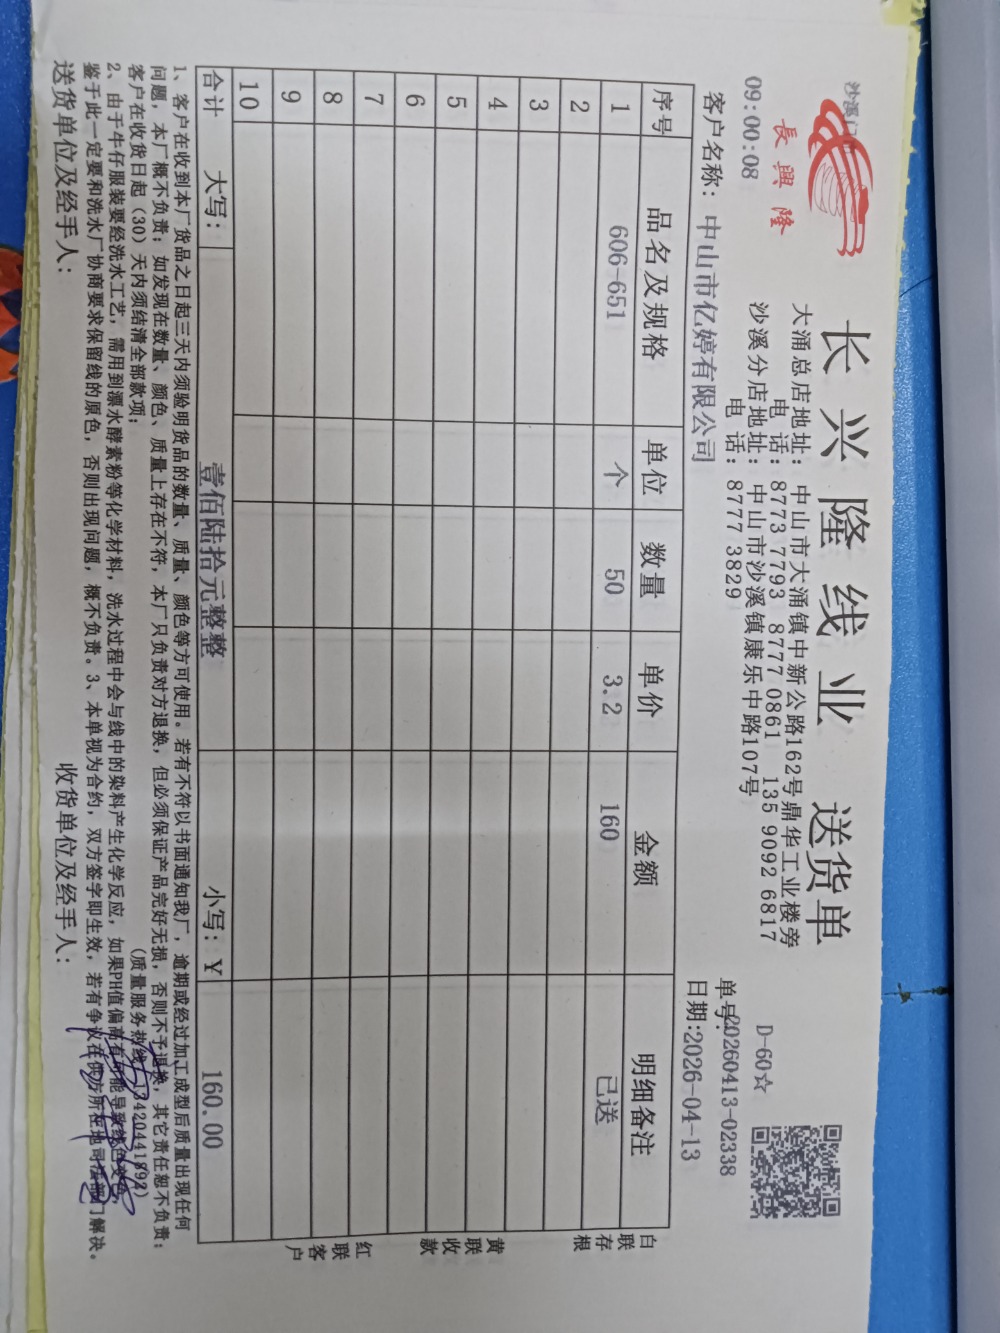 沙溪门
長興隆
长兴隆线业 送货单
大涌总店地址：中山市大涌镇中新公路162号鼎华工业楼旁
电 话：8773 7793 8777 0861 135 9092 6817
沙溪分店地址：中山市沙溪镇康乐中路107号
电 话：8777 3829
09:00:08
D-60☆
单号:20260413-02338
客户名称：中山市亿婷有限公司
日期:2026-04-13
序号 品名及规格 单位 数量 单价 金额 明细备注
1 606-651 个 50 3.2 160 已送
2
3
4
5
6
7
8
9
10
合计 大写： 壹佰陆拾元整整 小写：Y 160.00
白联存根
黄联收款
红联客户
1、客户在收到本厂货品之日起三天内须验明货品的数量、质量、颜色等方可使用。若有不符以书面通知我厂，逾期或经过加工成型后质量出现任何
问题，本厂概不负责；如发现在数量、颜色、质量上存在不符，本厂只负责对方退换，但必须保证产品完好无损，否则不予退换，其它责任恕不负责；
客户在收货日起（30）天内须结清全部款项； （质量服务热线：13420441892）
2、由于牛仔服装要经洗水工艺，需用到漂水酵素粉等化学材料，洗水过程中会与线中的染料产生化学反应，如果PH值偏高有可能导致线色变色，
鉴于此一定要和洗水厂协商要求保留线的原色，否则出现问题，概不负责。3、本单视为合约，双方签字即生效，若有争议在供方所在地司法部门解决。
送货单位及经手人： 收货单位及经手人：